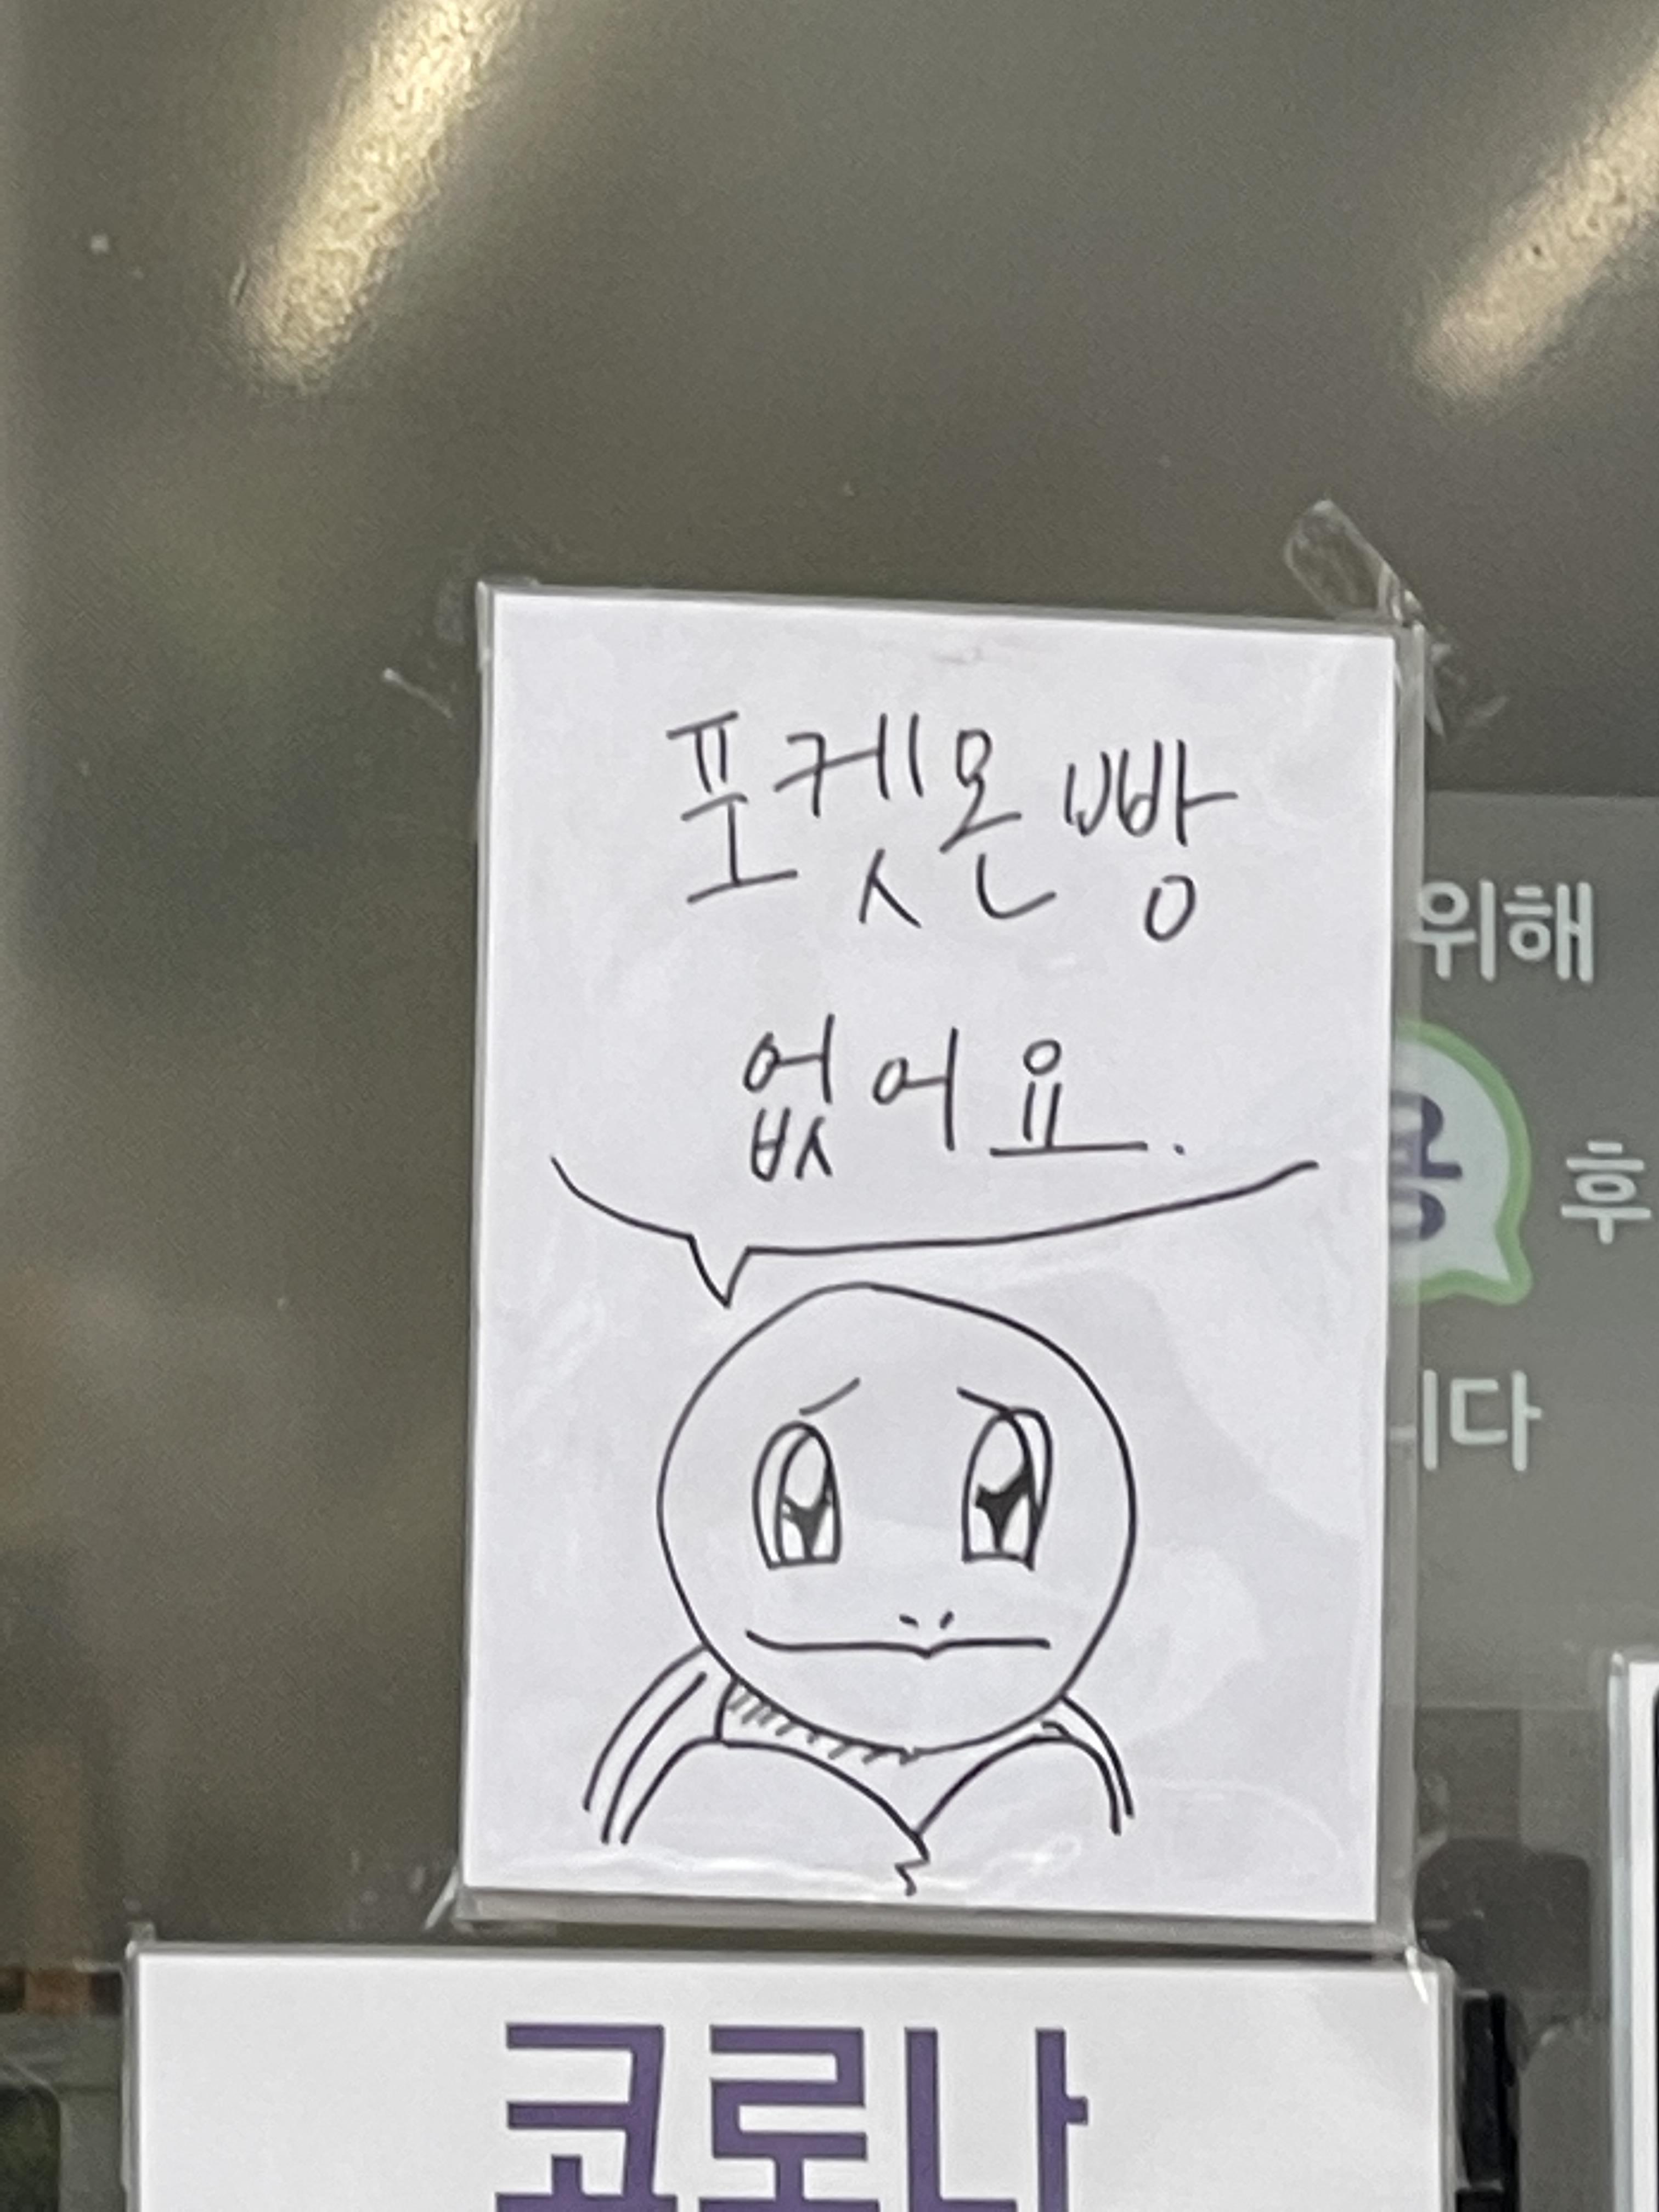 포켓몬 빵
없어요.
위해
용 후
니다
코로나